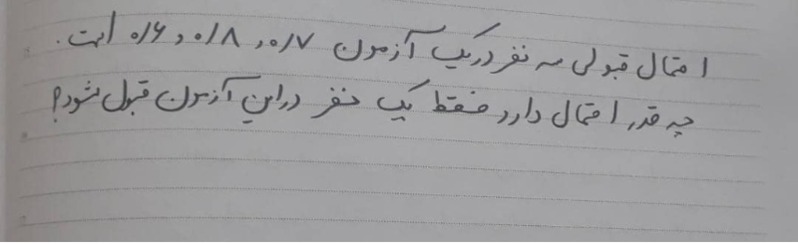 احتمال قبولی سه نفر در یک آزمون ۰/۷ ، ۰/۸ و ۰/۶ است.
چه قدر احتمال دارد فقط یک نفر در این آزمون قبول شود؟